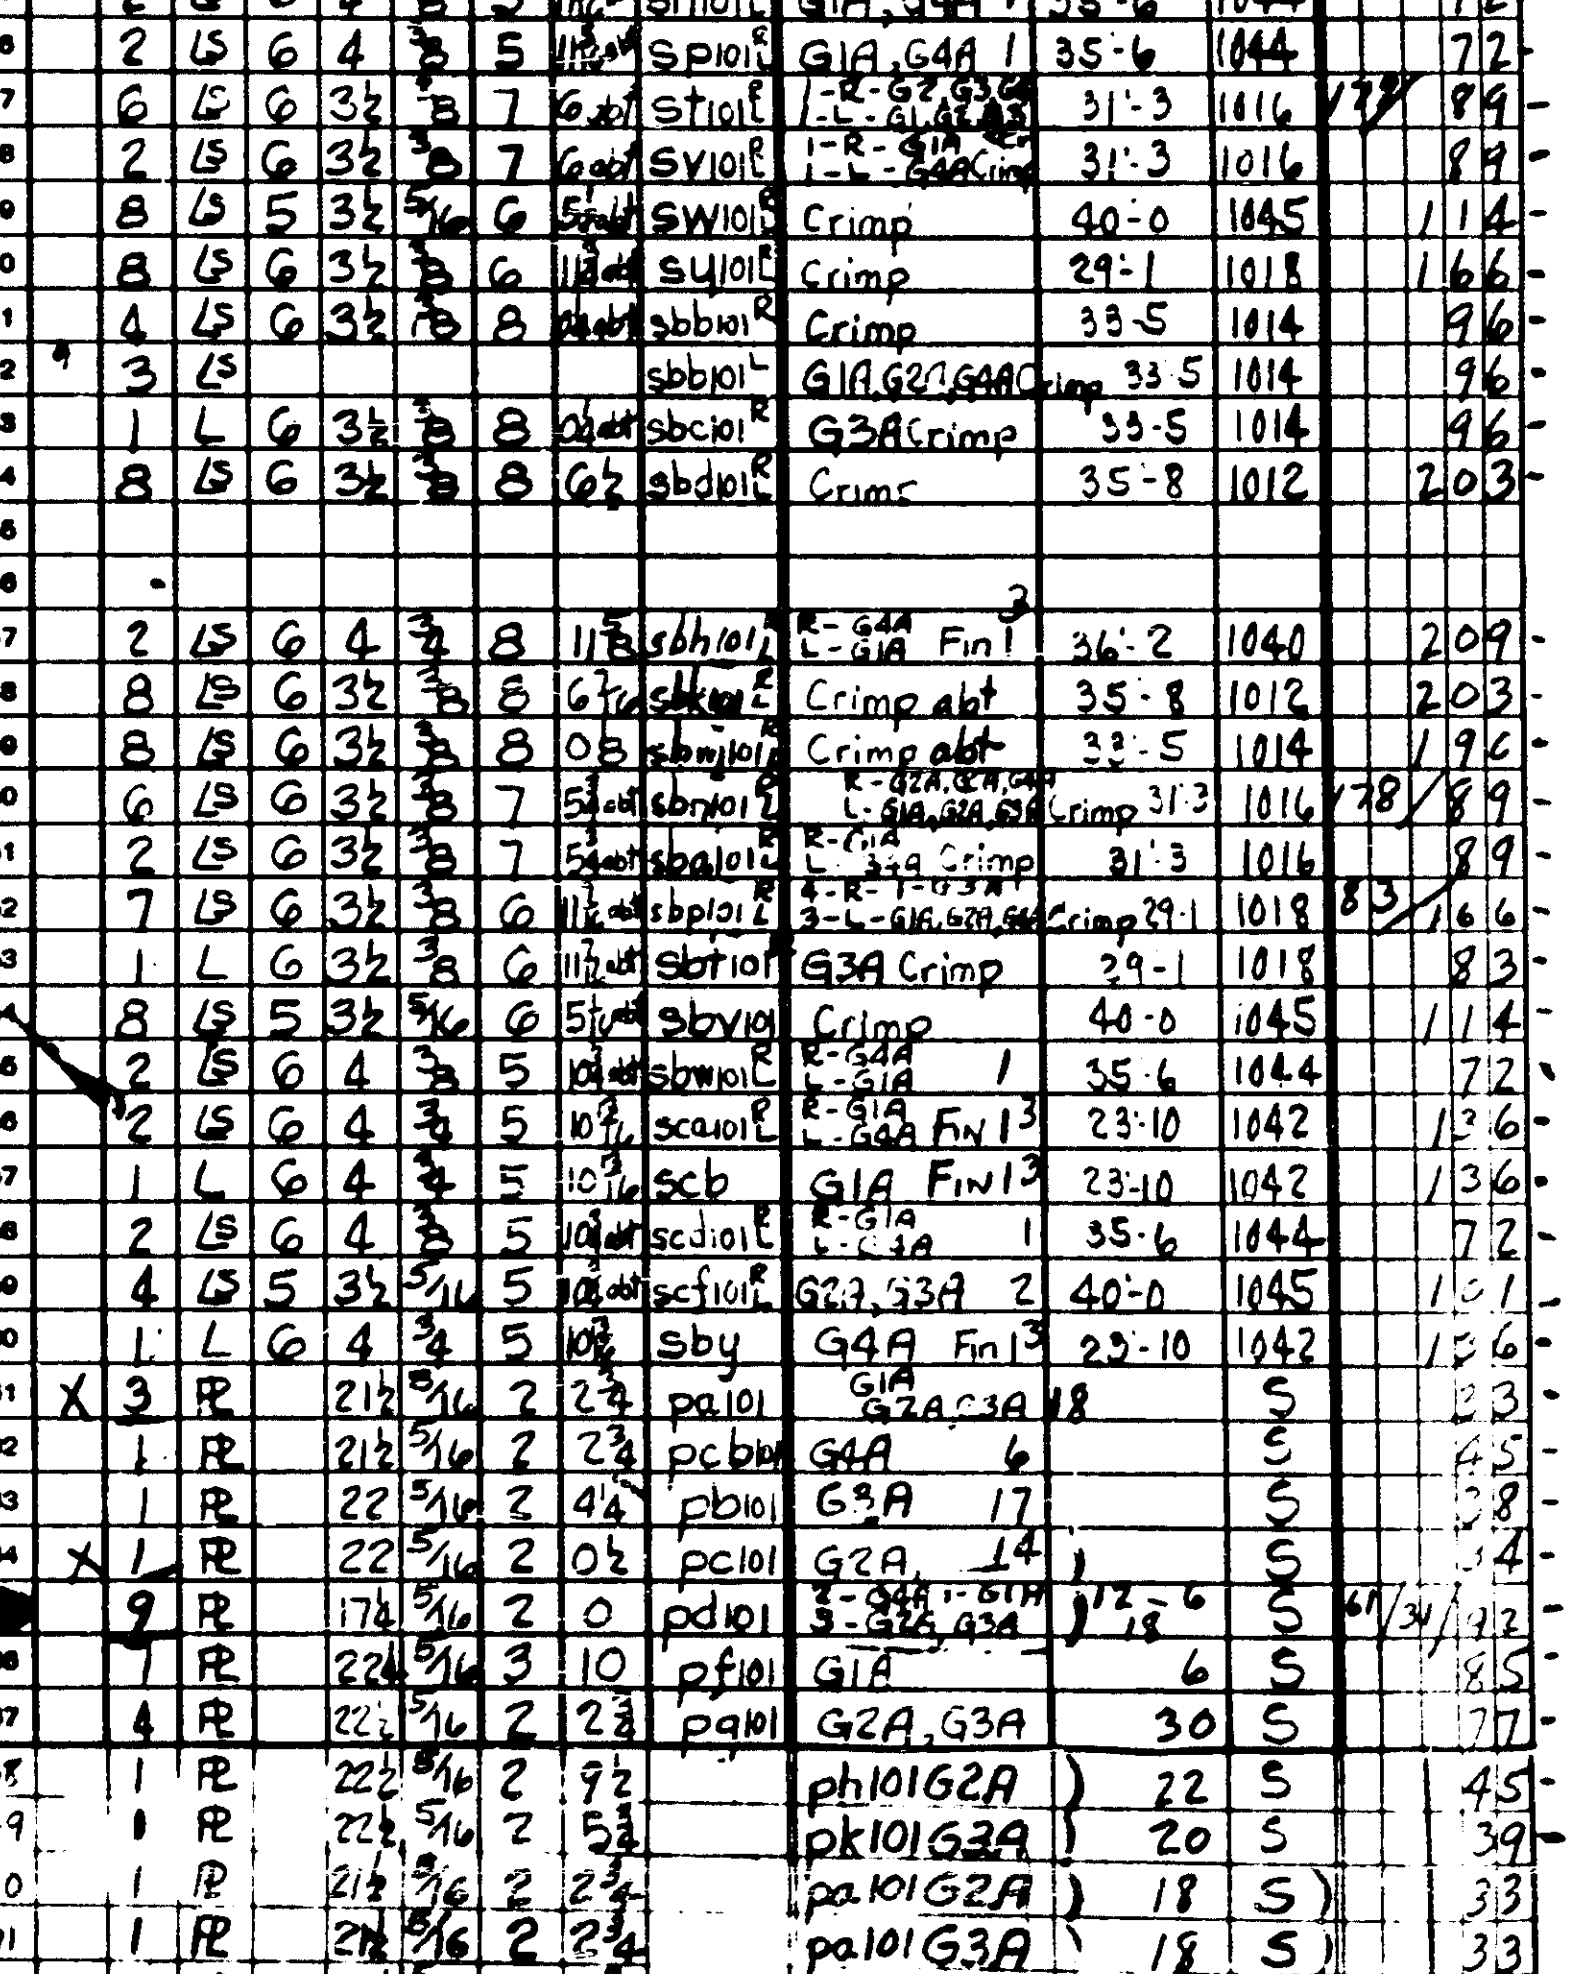 8 2 LS 6 4 3/8 5 sp101 R G1A, G4A 1 35-6 1044 72 -
7 6 LS 6 3½ 3/8 7 6 abt st101 R L 1-R-G2, G3, 31'-3 1016 178/ 89 -
1-L-G1, G2,
8 2 LS 6 3½ 3/8 7 6 abt sv101 R L 1-R-G1A Cr 31'-3 1016 89 -
1-L-G4A Crimp
9 8 LS 5 3½ 5/16 6 sw101 R Crimp 40-0 1045 114 -
0 8 LS 6 3½ 3/8 6 sy101 R L Crimp 29'-1 1018 166 -
1 4 LS 6 3½ 3/8 8 sbb101 R Crimp 33-5 1014 96 -
2 3 LS sbb101 L G1A, G2A, G4A Crimp 33-5 1014 96 -
3 1 L 6 3½ 3/8 8 abt sbc101 R G3A Crimp 33-5 1014 96 -
4 8 LS 6 3½ 3/8 8 6½ sbd101 R L 35-8 1012 203 -
5
6
7 2 LS 6 4 3/4 8 11 5/8 sbh101 R L R-G4A L-G1A Fin 1 3 36'-2 1040 209 -
8 8 LS 6 3½ 3/8 8 6 7/16 sbk101 R L Crimp abt 35-8 1012 203 -
9 8 LS 6 3½ 3/8 8 08 sbm101 R Crimp abt 33-5 1014 196 -
0 6 LS 6 3½ 3/8 7 5¾ abt sbn101 R L R-G2A, G4A 31'-3 1016 178/ 89 -
L-G1A, G2A, G3A Crimp
1 2 LS 6 3½ 3/8 7 5¾ abt 101 R L R-G1A 31'-3 1016 89 -
L-G4A Crimp
2 7 LS 6 3½ 3/8 6 11½ abt sbp101 R L 4-R- 29-1 1018 83/ 166 -
3-L-G1A, G2A, G4A Crimp
3 1 L 6 3½ 3/8 6 11½ abt sbt101 G3A Crimp 29-1 1018 83 -
8 LS 5 3½ 5/16 6 abt sbv101 Crimp 40-0 1045 114 -
5 2 LS 6 4 3/8 5 10¾ abt sbw101 R L R-G4A L-G1A 1 35-6 1044 72
6 2 LS 6 4 3/4 5 10 3/16 sca101 R L R-G1A L-G4A FIN 1 3 23'-10 1042 136 -
7 1 L 6 4 3/4 5 10 3/16 scb G1A FIN 1 3 23'-10 1042 136 -
8 2 LS 6 4 3/8 5 10¾ abt scd101 R L R-G1A L-G4A 1 35-6 1044 72 -
9 4 LS 5 3½ 5/16 5 abt scf101 R L G2A, G3A 2 40'-0 1045 -
0 1 L 6 4 3/4 5 10 3/16 sby G4A Fin 1 3 23'-10 1042 136 -
1 X 3 PL 21½ 5/16 2 2¾ pa101 G1A G2A, G3A 18 S 33 -
2 1 PL 21½ 5/16 2 2¾ pcb101 G4A 6 S 45 -
3 1 PL 22 5/16 2 4¼ pb101 G3A 17 S 38 -
4 X 1 PL 22 5/16 2 0½ pc101 G2A, 14 ) S 34 -
9 PL 17¼ 5/16 2 0 pd101 2-G4A, 1-G1A ) 12-6 S 61/31/92 -
3-G2A, G3A 18
6 1 PL 5/16 3 10 pf101 G1A 6 S 85 -
7 4 PL 22½ 5/16 2 2¾ pg101 G2A, G3A 30 S 77 -
8 1 PL 22½ 5/16 2 9½ ph101 G2A ) 22 S 45 -
9 1 PL 22½ 5/16 2 5¾ pk101 G3A ) 20 S 39 -
0 1 PL 21½ 5/16 2 2¾ pa101 G2A ) 18 S ) 33
1 1 PL 21½ 5/16 2 2¾ pa101 G3A ) 18 S ) 33